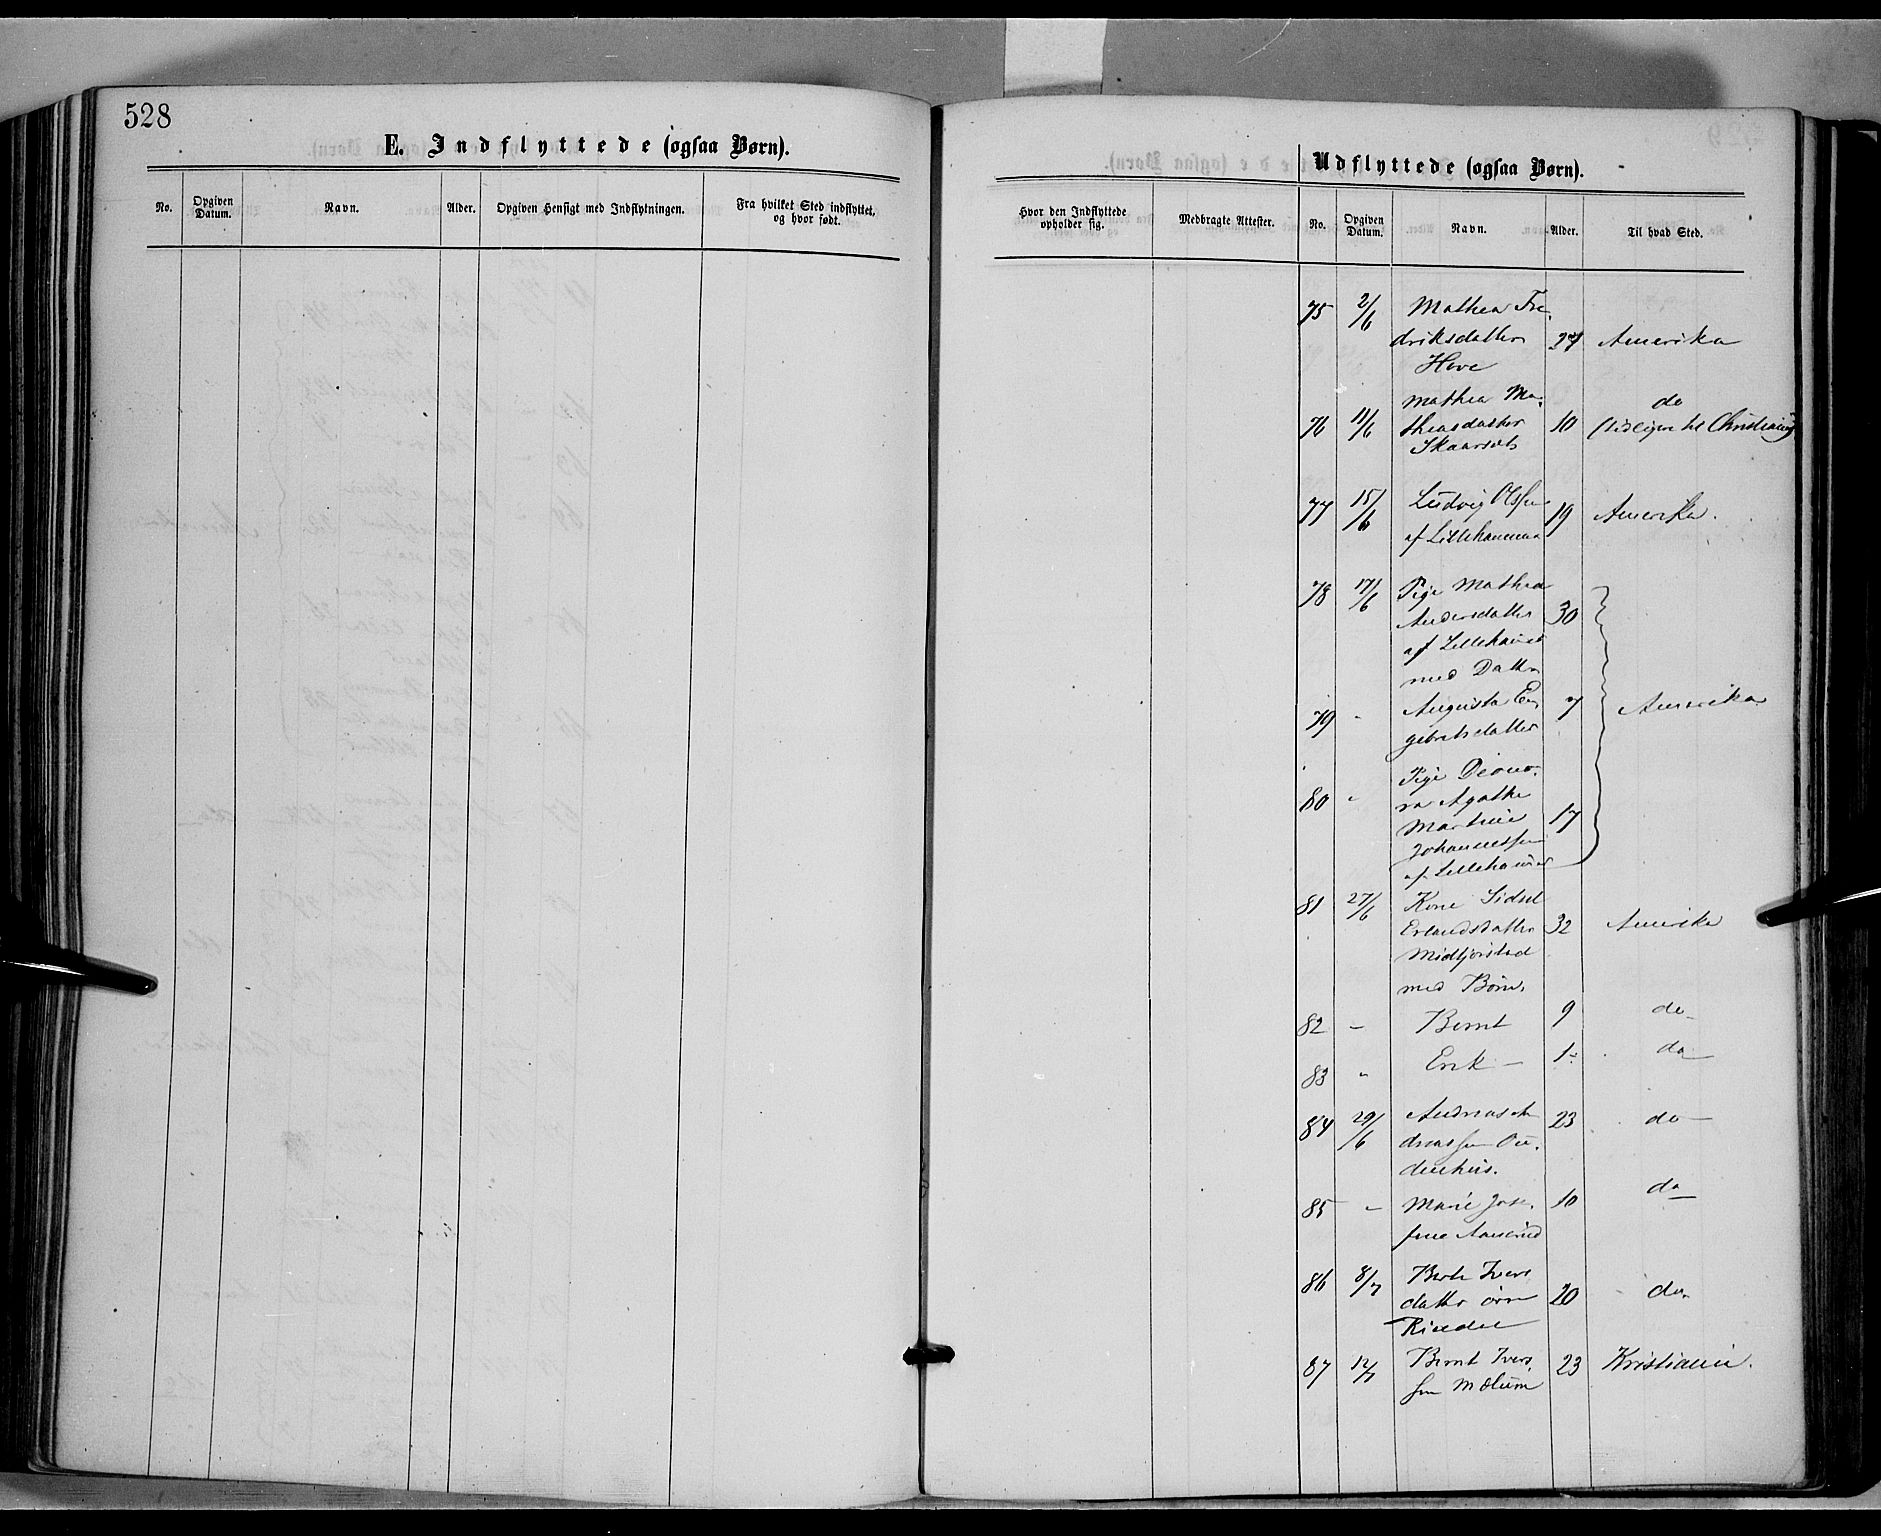 528
E. Indflyttede (ogsaa Børn).
No.
Opgiven Datum.
Navn.
Alder.
Opgiven Hensigt med Indflytningen.
Fra hvilket Sted indflyttet, og hvor født.
Udflyttede (ogsaa Børn).
Hvor den Indflyttede opholder sig.
Medbragte Attester.
No.
Opgiven Datum.
Navn.
Alder.
Til hvad Sted.
75 2/6 Mathea Fre-
driksdatter 27 Amerika
Hove
Mathea Ma- do
76 11/6 theasdatter 10 til Christiania
Skaarset
77 15/6 Ludvig Olsen 19 Amerika.
af Lillehammer
78 17/6 Pige Mathea
Andersdatter 30
af Lillehamer
med Datter
79 - Augusta En- 7 Amerika
gebretsdatter
Pige
80 - Agathe
Martine 17
Johannessen
af Lillehamer
81 27/6 Kone Sidsel
Erlandsdatter 32 Amerika
med Børn,
82 - Bernt 9 do-
83 - Erik - 1- do
84 29/6 Andreas An- 23 do-
dreassen
85 - Marie Jose- 10 do
fine
86 8/7 Berte Ivers
datter 20 do.
87 12/7 Bernt Ivers 23 Kristiania.
sen Mælum